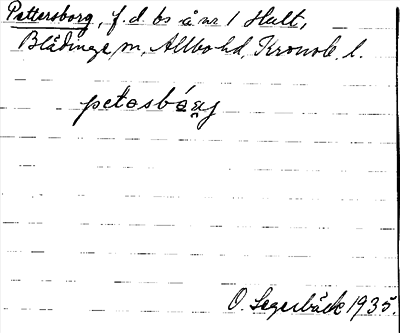 Pettersborg, f. d. bs å nr 1 Hult,
Blädinge sn, Allbo hd, Kronob. l.
petəsbórj
O. Segerbäck 1935.